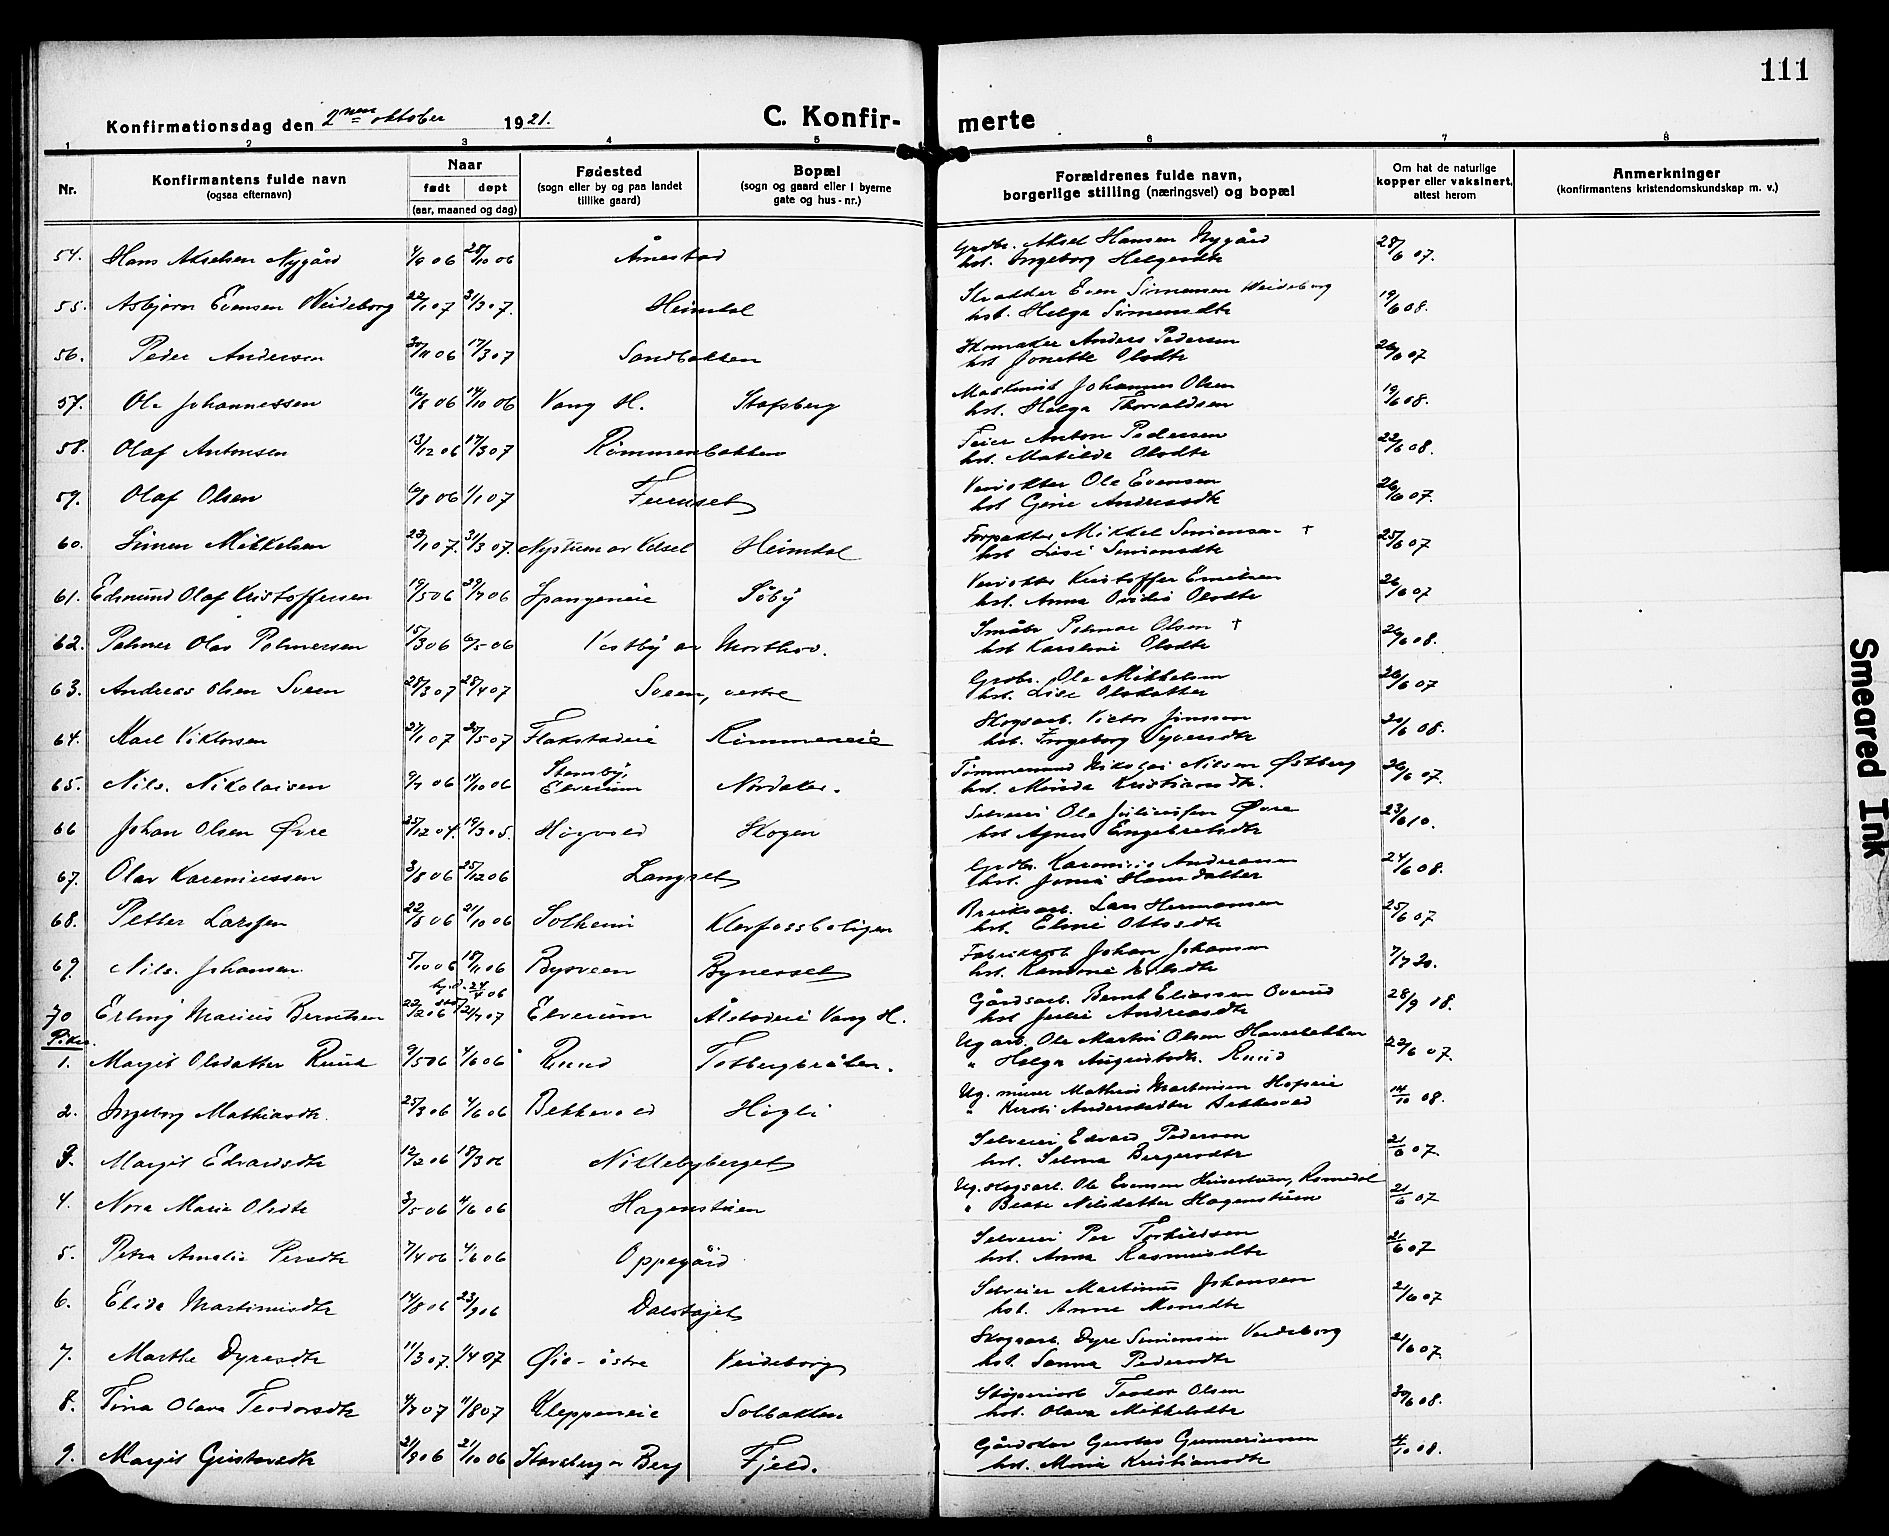 111
Konfirmationsdag den 2nen oktober 1921.
C. Konfirmerte
1 2 3 4 5 6 7 8
Nr.
Konfirmantens fulde navn
(ogsaa efternavn)
Naar
født døpt
(aar, maaned og dag)
Fødested
(sogn eller by og paa landet
tillike gaard)
Bopæl
(sogn og gaard eller i byerne
gate og hus-nr.)
Forældrenes fulde navn,
borgerlige stilling (næringsvei) og bopæl
Om hat de naturlige
kopper eller vaksinert,
attest herom
Anmerkninger
(konfirmantens kristendomskundskap m. v.)
54. Hans Akselsen Nygård 28/10 06 Ånestad Grdbr. Aksel Hansen Nygård
hst. Ingeborg Helgesdtr 28/6 07.
55. Asbjørn Evensen Weideborg 22/1 07 31/3 07. Heimdal Skrædder Even Simensen Weideborg
hst. Helga Simensdtr 19/6 08.
56. Peder Andersen 30/11 06 17/3 07 Sandbakken Skomaker Anders Pedersen
hst Jonette Olsdtr 26/6 07
57. Ole Johannessen 16/8 06 14/10 06 Vang H. Stafsberg Maskinist Johannes Olsen
hst. Helga Thorvaldsen 19/6 08.
58. Olaf Antonsen 13/12 06 17/3 07 Rømmenbakken Feier Anton Pedersen
hst. Matilde Olsdtr 22/6 08.
59. Olaf Olsen 6/8 06 1/1 07 Furuset Ole Evensen
hst Gine Andreasdtr 26/6 07.
60. Simen Mikkelsen 23/1 07. 31/3 07. Nystuen av Velset Heimdal Forpakter Mikkel Simensen †
hst Lise Simensdtr 25/6 07
61. Edmund Olaf Kristoffersen 19/5 06 29/7 06 Spangeneie Søby Kristoffer Emilsen
hst. Anna Ovidia Olsdtr 26/6 07
62. Palmer Olav Palmersen 15/3 06 6/5 06 Vestby av Morthov. Småbr Palmar Olsen †
hst Karoline Olsdtr 26/6 08.
63. Andreas Olsen Sveen 25/3 07 28/4 07 Sveen, vestre Grdbr. Ole Mikkelsen
hst. Lise Olsdatter 26/6 07
64. Karl Viktorsen 27/1 07 20/5 07 Flakstadeie Rømmeneie Skogsarb. Victor Jonsson
hst. Ingeborg Syversdtr 20/6 08.
65. Nils Nikolaisen 9/7 06 14/10 06 Stensby,
Elverum Nordaker. Tømmermand Nikolai Nilsen Østberg
hst. Mina Kristiansdt. 26/6 07.
66 Johan Olsen Øvre 25/12 04. 19/3 05. Høgvold Skogen Selveier Ole Juliussen Øvre
hst Agnes Engebretsdtr 23/6 10.
67. Olav Kareniussen 3/8 06 25/12 06 Langset Grdbr. Karenius Andreassen
hst. Jonia Hansdatter 24/6 08.
68. Petter Larssen 22/8 06 21/10 06 Solheim Klevfossboligen Bruksarb. Lars Hermansen
hst. Eline Ottosdtr 25/6 07
69. Nils Johansen 5/10 06 18/11 06 Bysveen Bynerset Fabrikarb Johan Johansen
hst. Ramina 7/7 20.
70 Erling Marius Berntsen 22/2 06 24/4 06 21/7 07 Elverum Ålstadeie Vang H. Gårdsarb. Bernt Eliassen Overud
hst Julie Andreasdtr 28/9 18.
Piker
1. Margit Olsdatter Ruud 9/5 06 4/6 06 Ruud Tolbergbråten. Ug arb. Ole Martin Olsen Haverbakken
" Helga Augustsdtr. Ruud 22/6 07.
2. Ingeborg Mathiasdtr. 25/3 06 4/6 06 Bekkevold Høgli Ug. murer Mathias Martinsen Hofseie
" Kirsti Andersdatter Bekkevold 14/10 08.
3. Margit Edvardsdtr 12/2 06 18/3 06 Niklebyberget Selveier Edvard Pedersen
hst. Selma Bergersdtr 21/6 07
4. Nora Marie Olsdtr 3/5 06 4/6 06 Hagenstuen Ug. skogsarb. Ole Evensen Husertuen, Romedal
" Beate Nilsdatter Hagenstuen 21/6 07
5. Petra Amalie Persdtr 7/4 06 4/6 06 Oppegård Selveier Per Torkildsen
hst. Anna Rasmusdtr 21/6 07
6. Elida Martinusdtr 14/8 06 23/9 06 Dalshøjet Selveier Martinus Johansen
hst. Anne Monsdtr 21/6 07
7. Marthe Dyresdtr 11/3 07. 1/4 07 Øie-østre Veideborg Skogsarb. Dyre Simensen Veideborg
hst. Sanna Pedersdtr 21/6 07.
8. Tina Olava Teodorsdtr 4/7 07 11/8 07 Kleppeneie Solbakken Støperiarb Teodor Olsen
hst. Olava Mikkelsdtr 30/6 08.
9. Margit Gustavsdtr 2/9 06 21/10 06 Stavsberg av Berg Fjeld. Gårdskar Gustav Gunneriussen
hst. Maria Kristiansdtr 4/10 08.
Smeared Ink